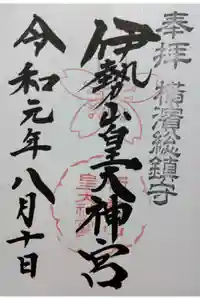 奉拝
横濱総鎮守
伊勢山皇大神宮
令和元年八月十日